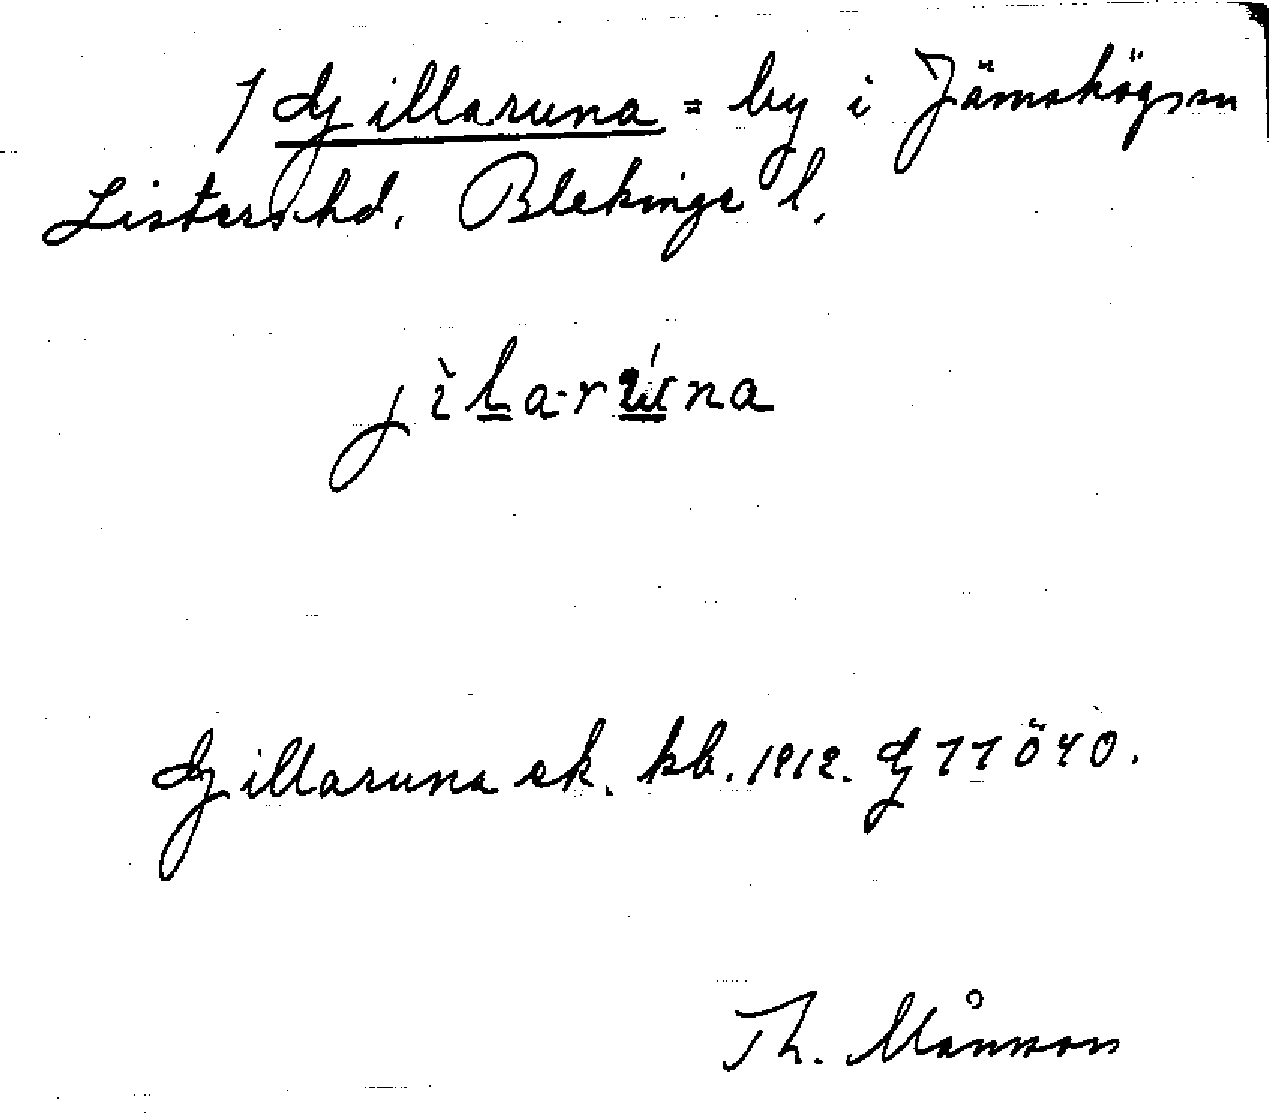 1 Gillaruna = by i Jämshögs sn
Listers hd. Blekinge l.
jìla-rúna
Gillaruna ek. kb. 1912. G 11 ö 40.
Th. Månsson